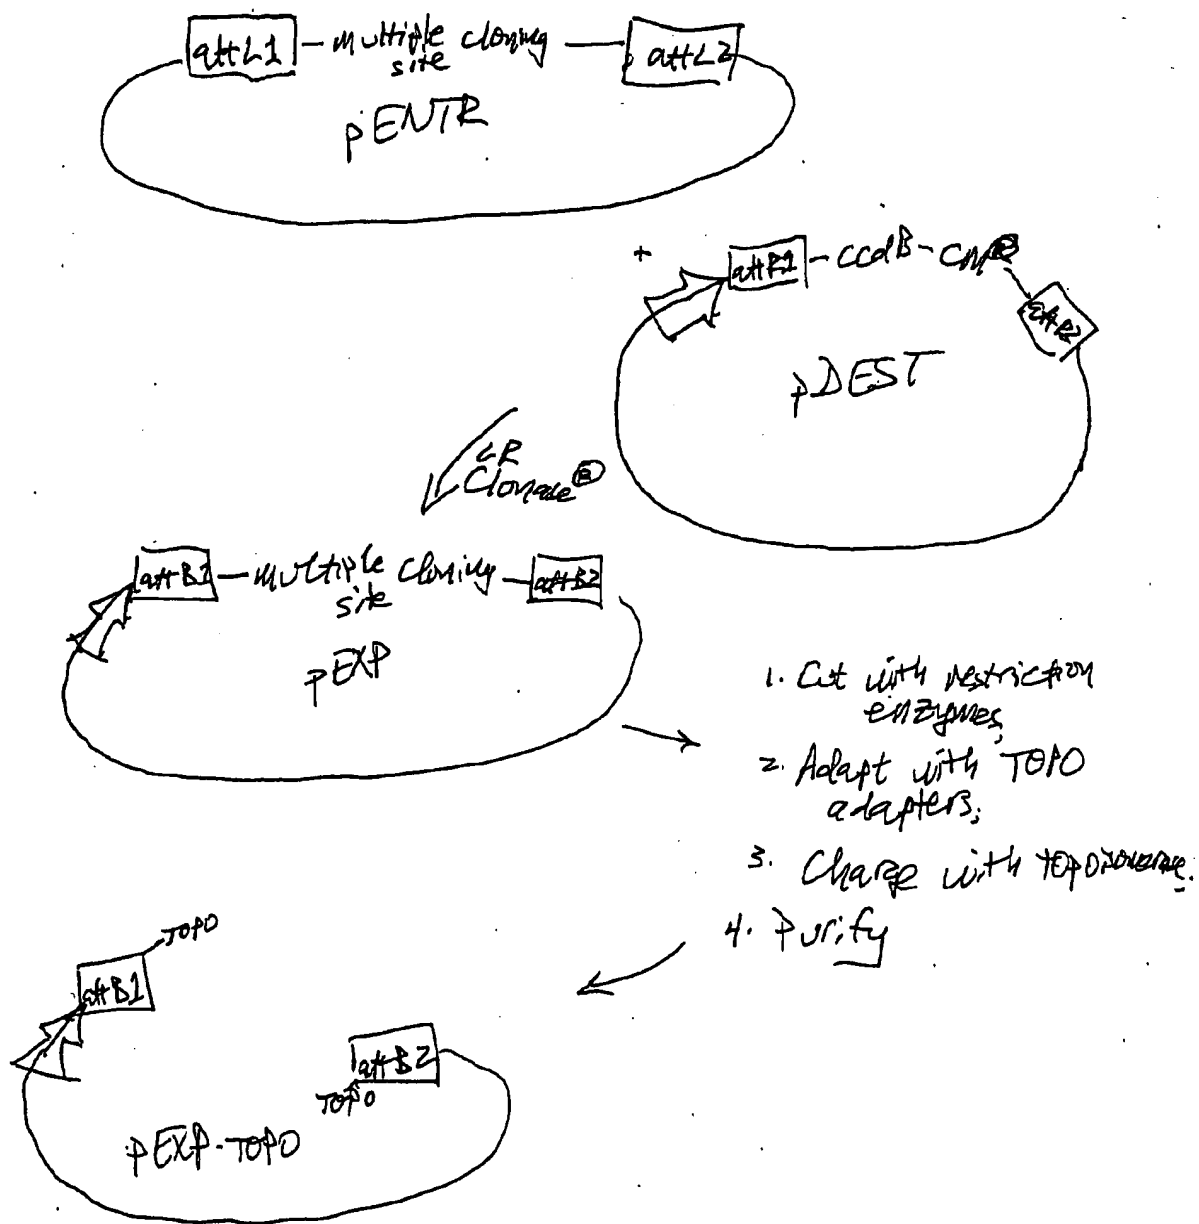 attL1
multiple cloning
site
attL2
pENTR
+
attR1
ccdB
CmR
attR2
pDEST
LR
Clonase®
attB1
multiple cloning
site
attB2
pEXP
1. Cut with restriction
enzymes;
2. Adapt with TOPO
adapters;
3. Charge with topoisomerase.
4. Purify
TOPO
attB1
attB2
TOPO
pEXP-TOPO